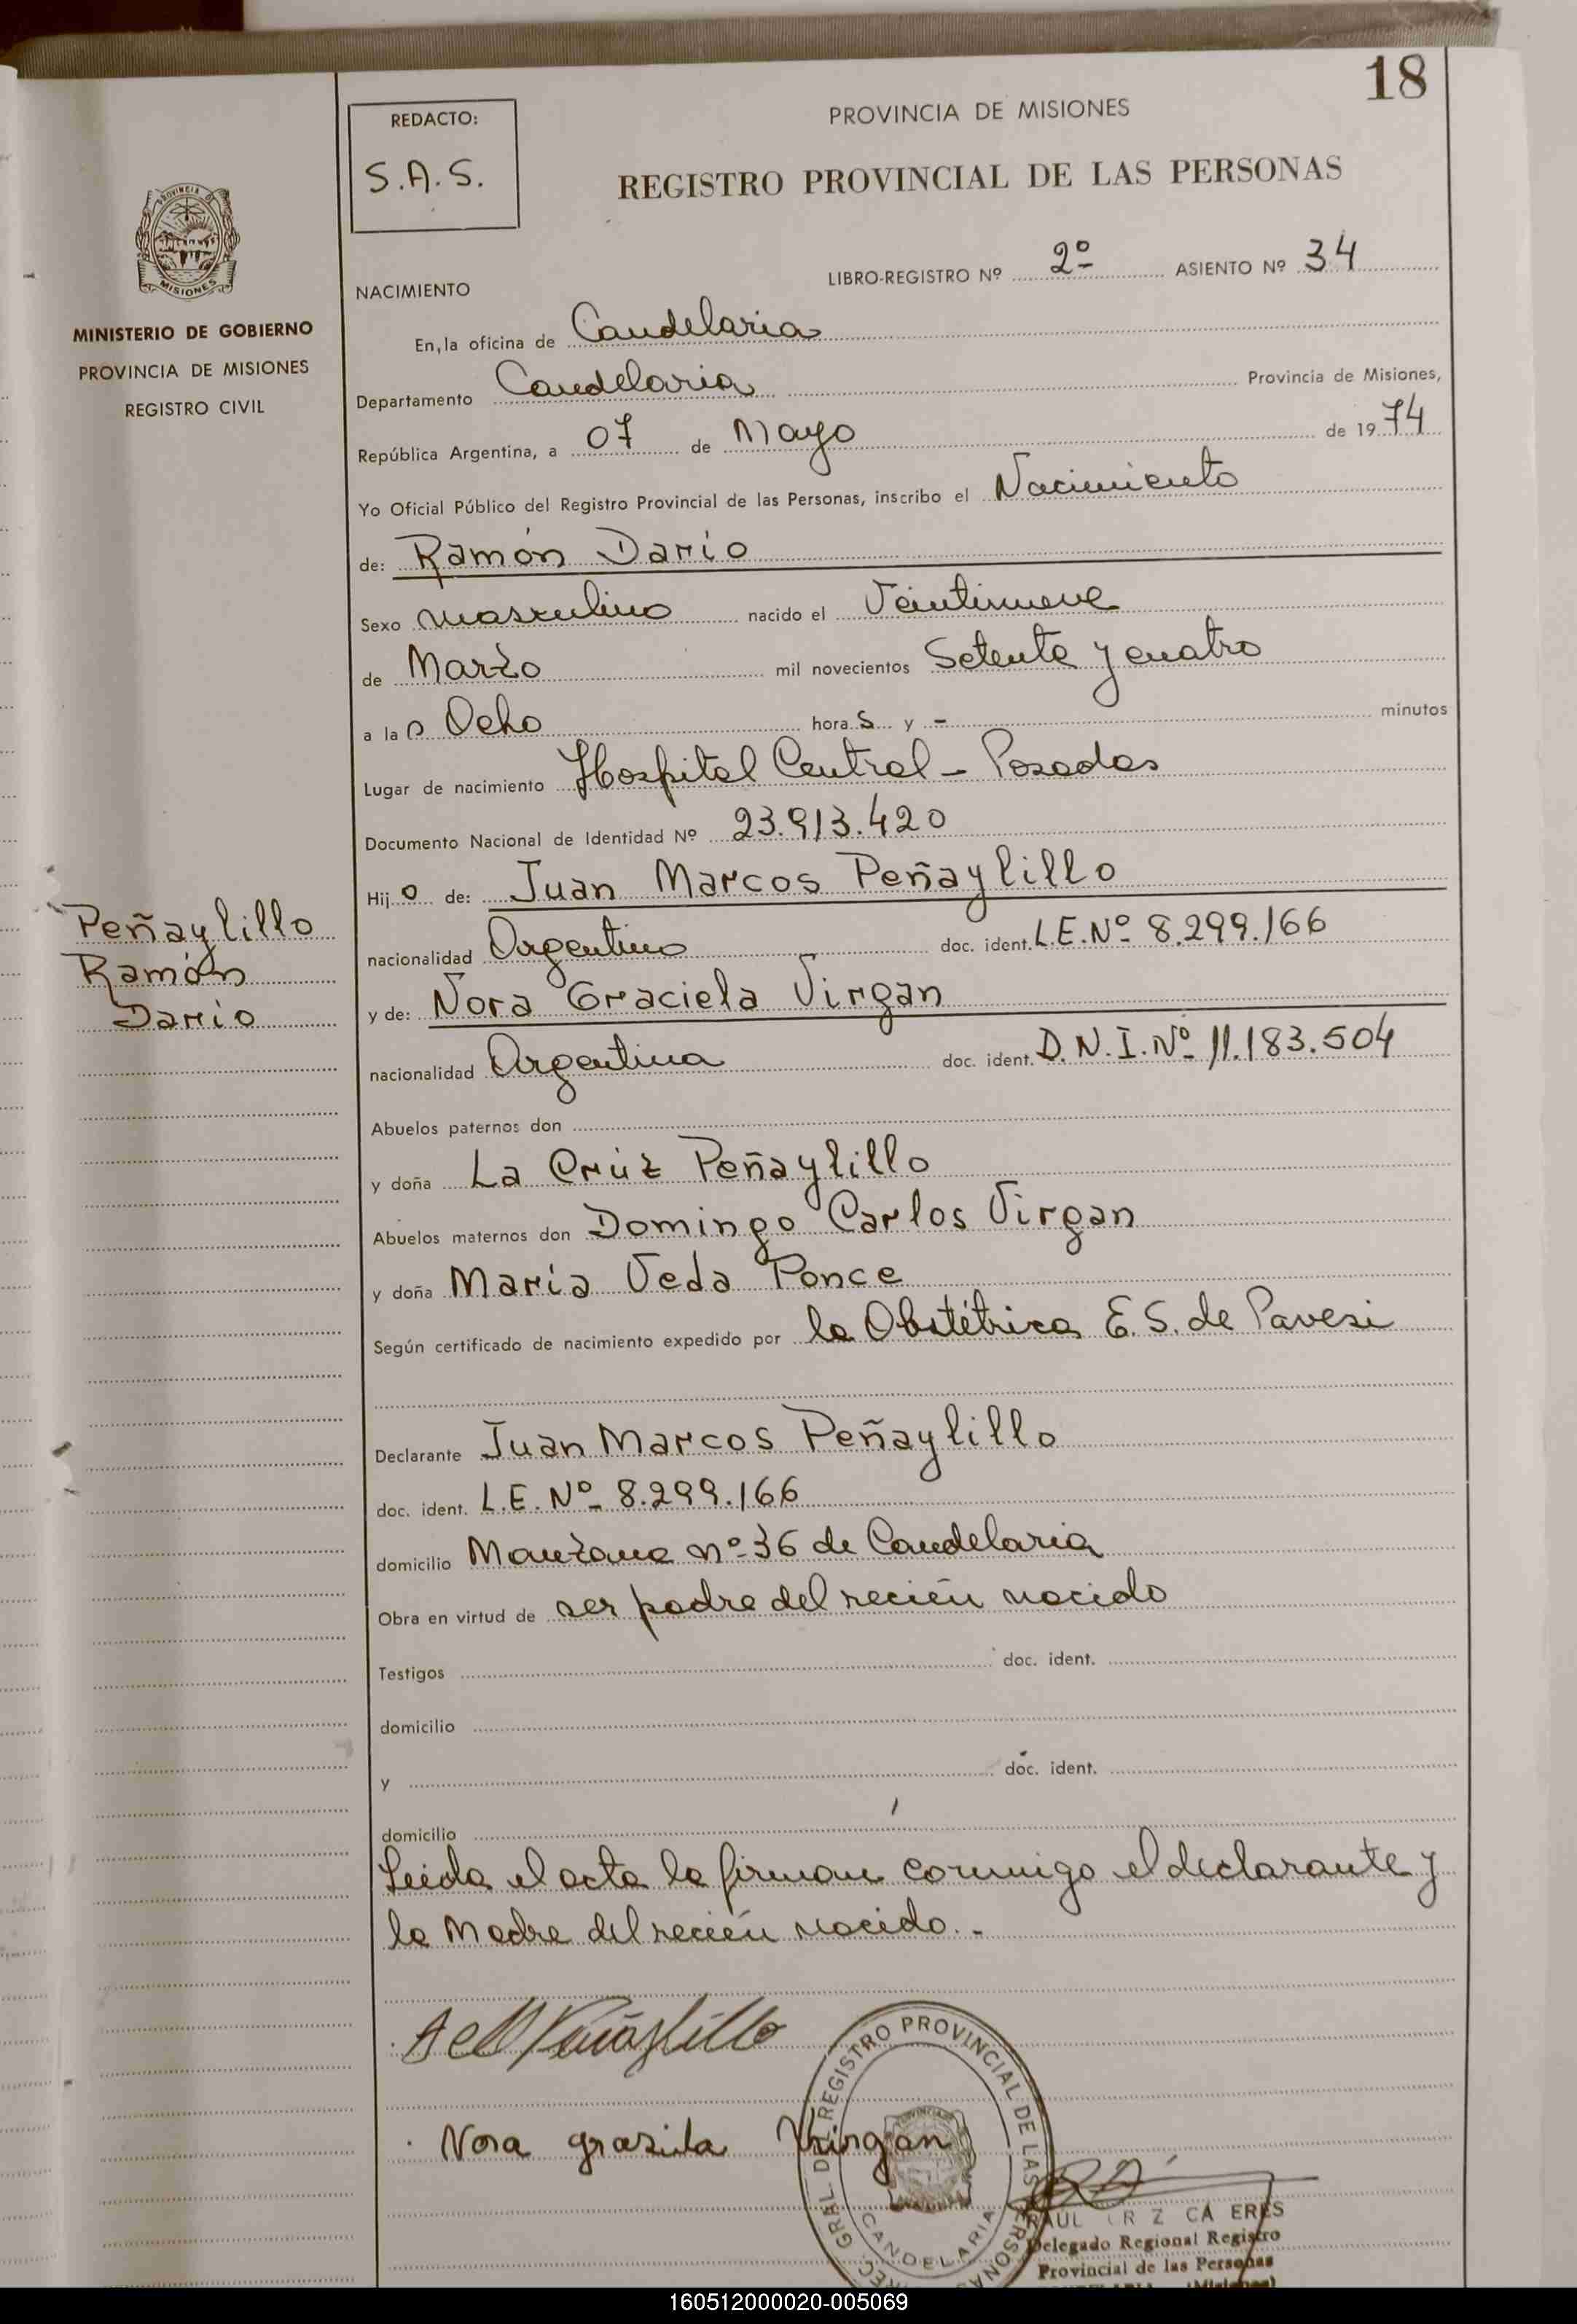 18
REDACTO:
S.A.S.
PROVINCIA DE MISIONES
REGISTRO PROVINCIAL DE LAS PERSONAS
PROVINCIA DE
MISIONES
MINISTERIO DE GOBIERNO
PROVINCIA DE MISIONES
REGISTRO CIVIL
LIBRO-REGISTRO Nº 2º ASIENTO Nº 34
NACIMIENTO
En, la oficina de Candelaria
Departamento Candelaria Provincia de Misiones,
República Argentina, a 07 de Mayo de 1974
Yo Oficial Público del Registro Provincial de las Personas, inscribo el Nacimiento
de: Ramón Darío
Sexo masculino nacido el Veintinueve
de Marzo mil novecientos Setenta y cuatro
a las Ocho horas y - minutos
Lugar de nacimiento Hospital Central - Posadas
Documento Nacional de Identidad Nº 23.913.420
Hijo de: Juan Marcos Peñaylillo
nacionalidad Argentino doc. ident. L.E.Nº 8.299.166
y de: Nora Graciela Virgan
nacionalidad Argentina doc. ident. D.N.I.Nº 11.183.504
Peñaylillo
Ramón
Darío
Abuelos paternos don
y doña La Crúz Peñaylillo
Abuelos maternos don Domingo Carlos Virgan
y doña María Veda Ponce
Según certificado de nacimiento expedido por la Obstétrica E.S. de Pavesi
Declarante Juan Marcos Peñaylillo
doc. ident. L.E. Nº 8.299.166
domicilio Manzana nº 36 de Candelaria
Obra en virtud de ser padre del recién nacido
Testigos doc. ident.
domicilio
y doc. ident.
domicilio
Leída el acta la firman conmigo el declarante y
la Madre del recién nacido.-
Peñaylillo
Nora grasiela Virgan
REGISTRO PROVINCIAL DE LAS PERSONAS
CANDELARIA
RAUL CA ERES
Delegado Regional Registro
Provincial de las Personas
160512000020-005069